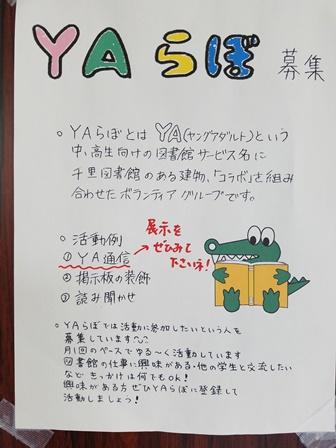 YAらぼ 募集
○ YAらぼとは YA(ヤングアダルト)という
中、高生向けの図書館サービス名に
千里図書館のある建物、「コラボ」を組み
合わせたボランティアグループです。
○ 活動例
① YA通信
② 掲示板の装飾
③ 読み聞かせ
展示を
ぜひみて
下さいネ!
○ YAらぼでは活動に参加したいという人を
募集しています〜
月1回のペースでゆる〜く活動しています
図書館の仕事に興味がある・他の学生と交流したい
など きっかけは何でもOK!
興味がある方ぜひYAらぼに登録して
活動しましょう!